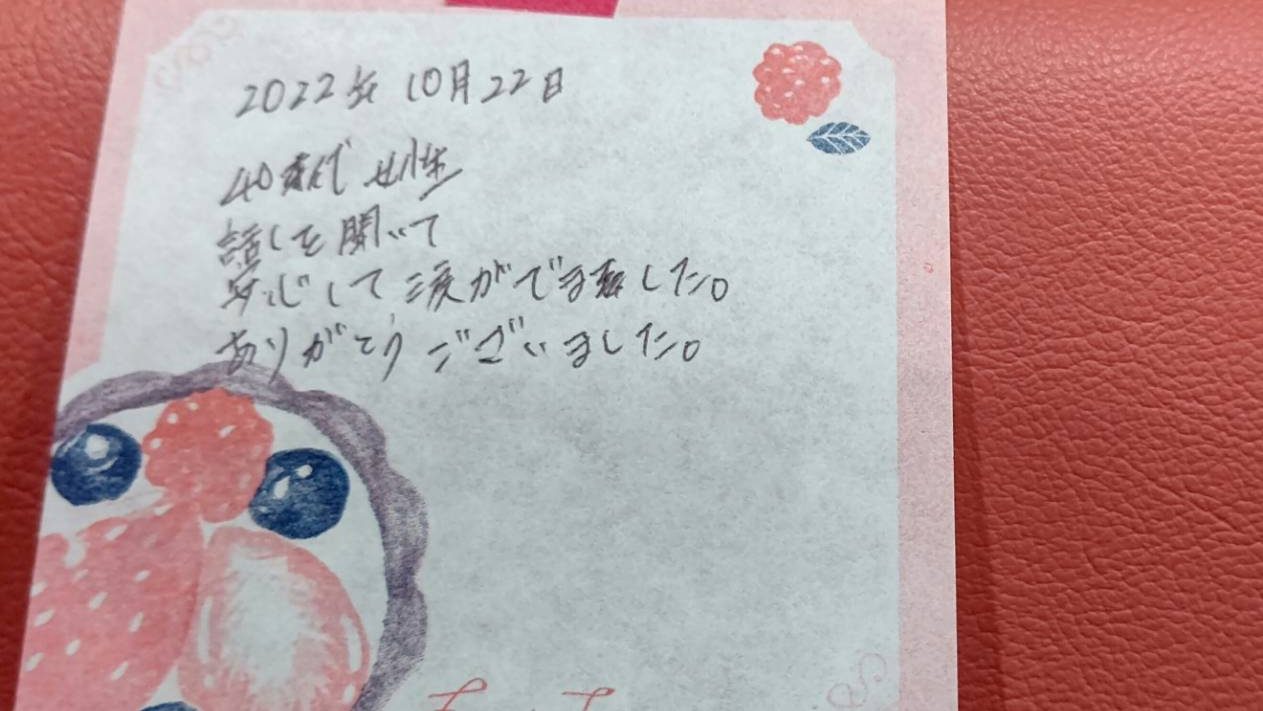 2022年 10月22日
40歳代 女性
話しを聞いて
安心して涙がでました。
ありがとうございました。